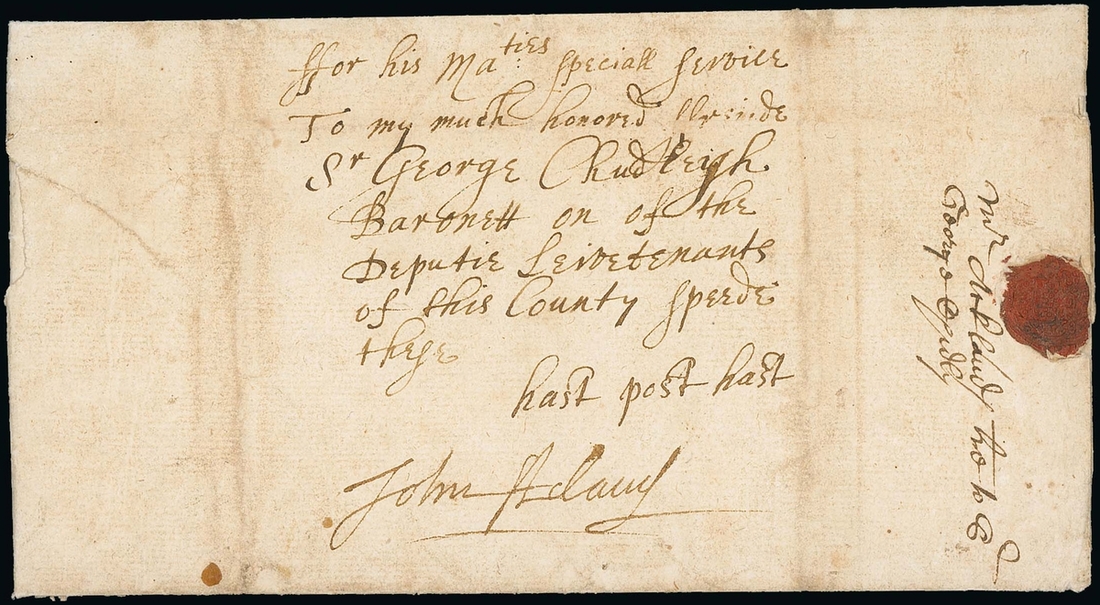 ffor his Ma:ties speciall service
To my much honored ffreinde
Sr George Chudleigh
Baronett on of the
Deputie Leivetenants
of this County speede
these
hast post hast
John Acland
Mr Ackland
George